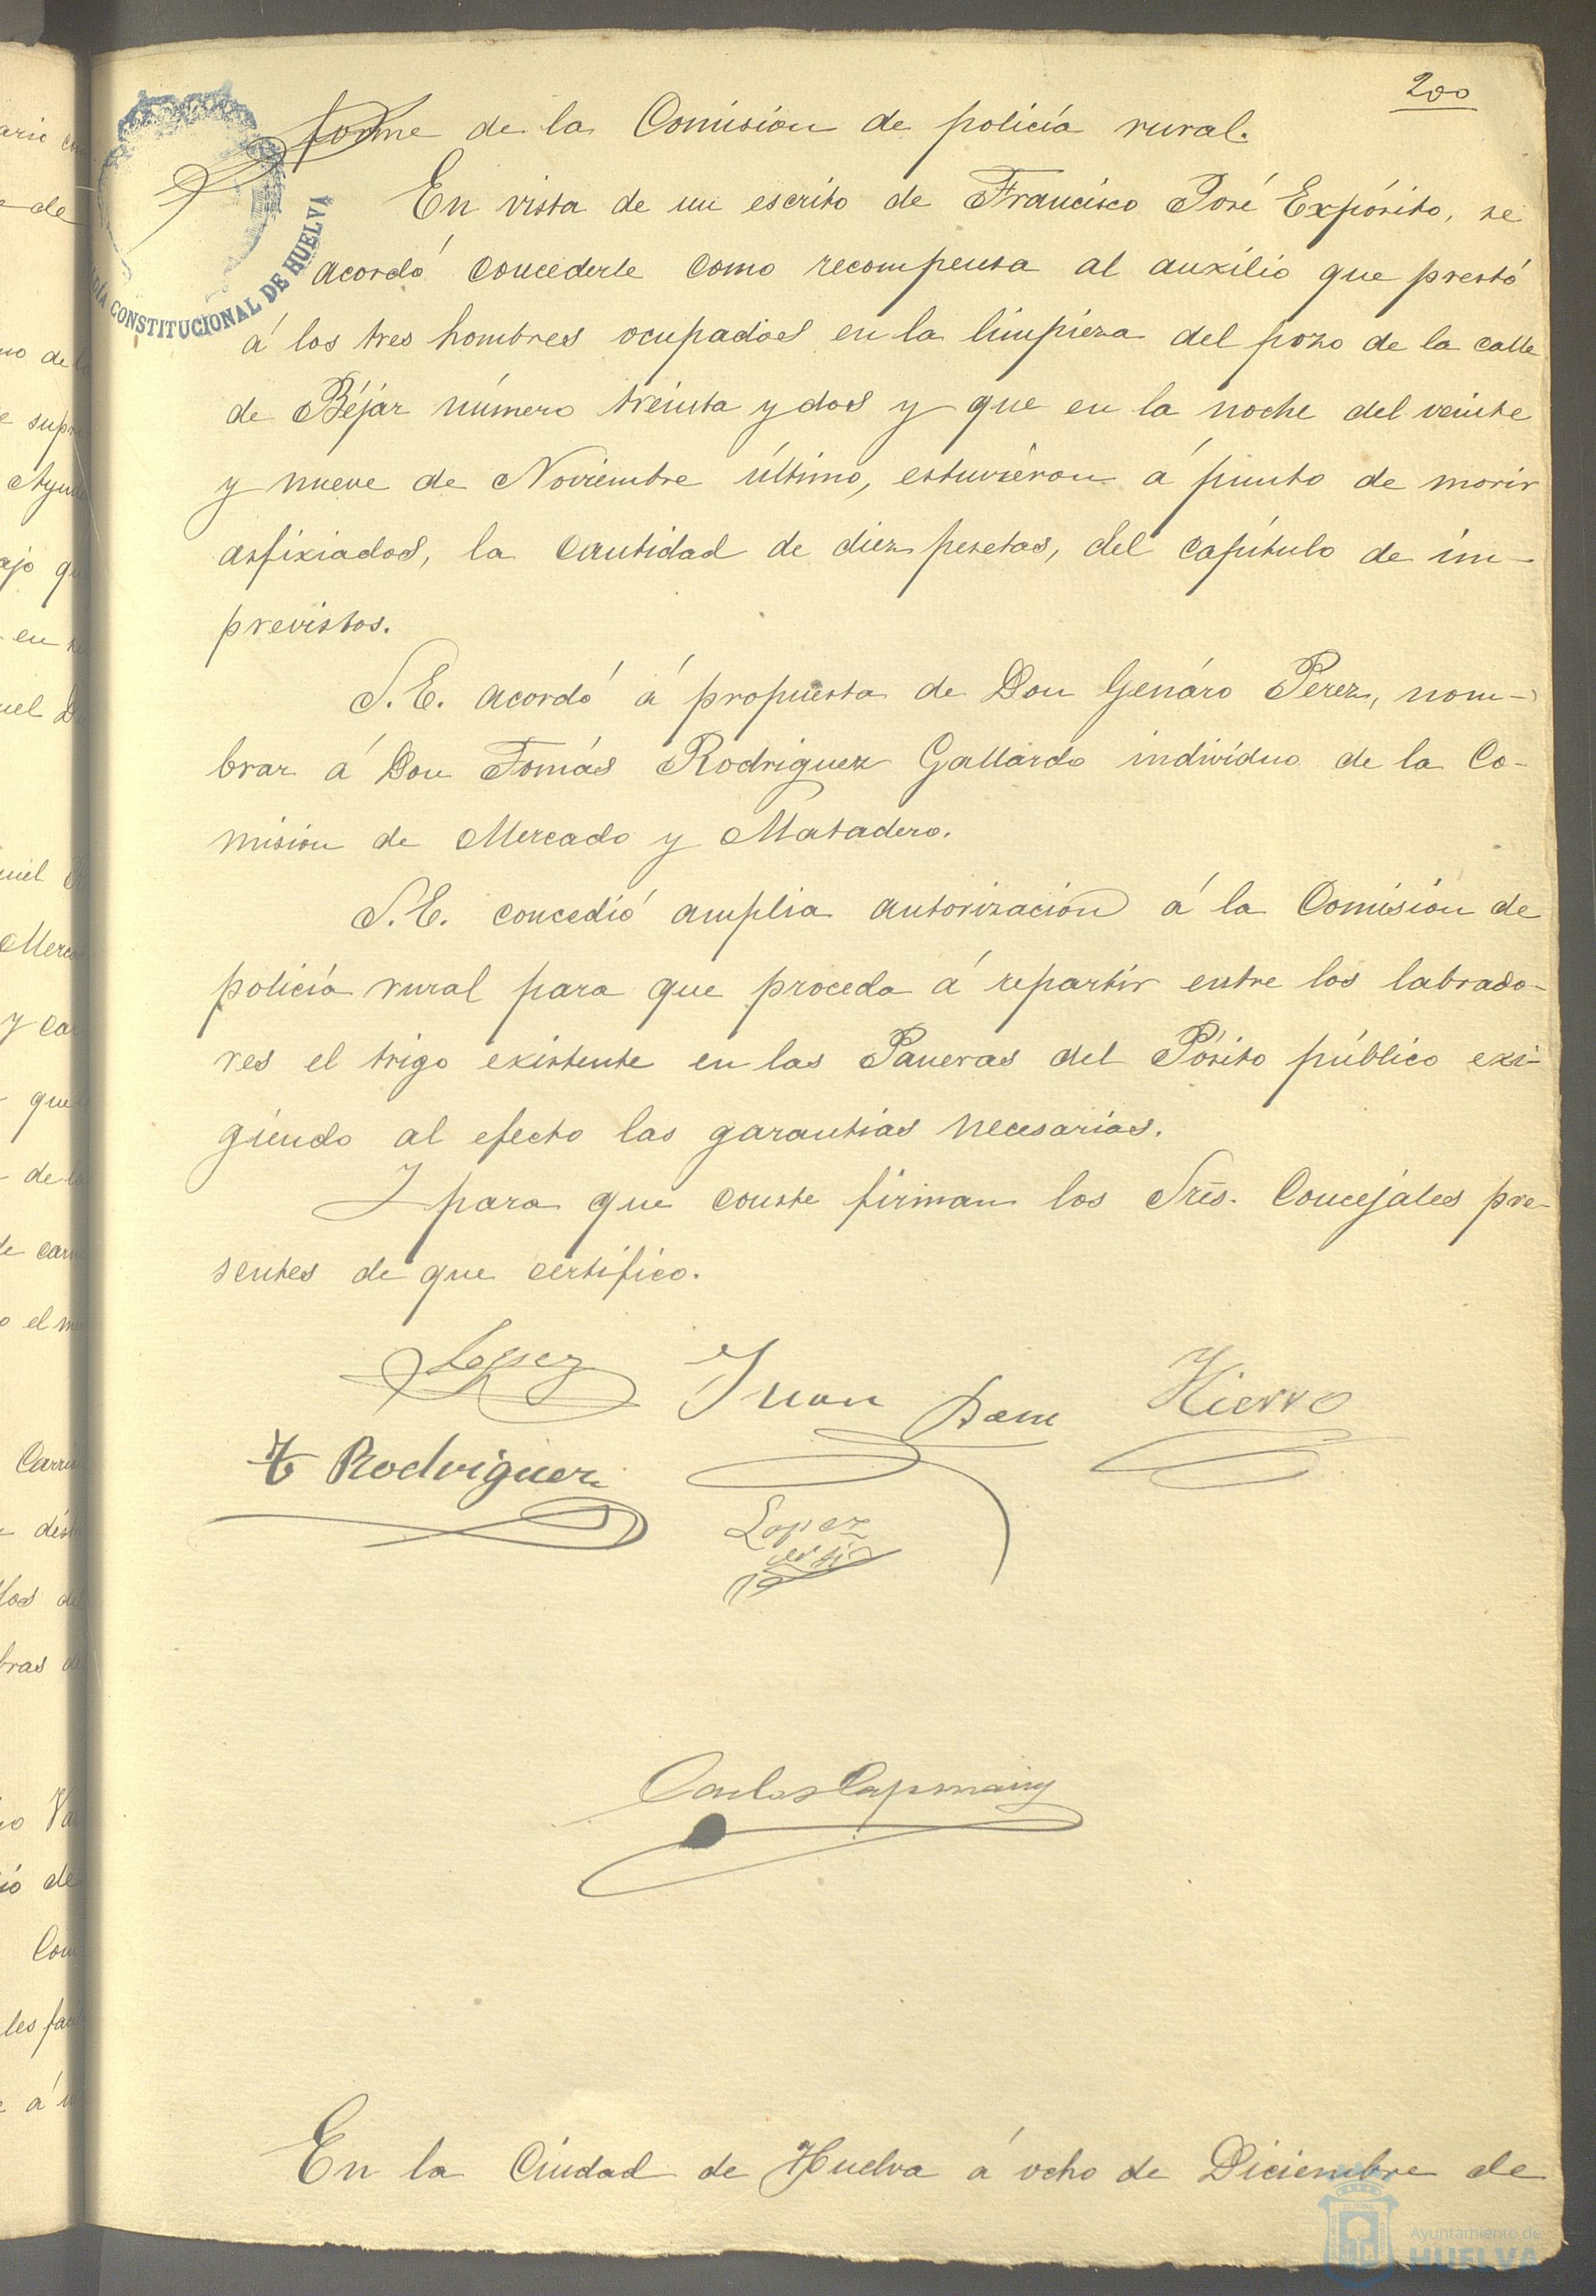 200
forme de la Comisión de policía rural.
En vista de un escrito de Francisco José Expósito, se
acordó concederle como recompensa al auxilio que prestó
á los tres hombres ocupados en la limpieza del pozo de la calle
de Béjar número treinta y dos y que en la noche del veinte
y nueve de Noviembre último, estuvieron á punto de morir
asfixiados, la cantidad de diez pesetas, del capítulo de im-
previstos.
S.E. acordó á propuesta de Don Genáro Perez, nom-
brar á Don Tomás Rodriguez Gallardo indivíduo de la Co-
misión de Mercado y Matadero.
S.E. concedió amplia autorización á la Comisión de
policía rural para que proceda á repartir entre los labrado-
res el trigo existente en las Paneras del Pósito público exi-
giendo al efecto las garantías necesarias.
Y para que conste firman los Sres. Concejáles pre-
sentes de que certífico.
Lopez Juan Hierro
T Rodriguez
Lopez
Carlos Capmany
En la Ciudad de Huelva á ocho de Diciembre de
CONSTITUCIONAL DE HUELVA
Ayuntamiento de
HUELVA